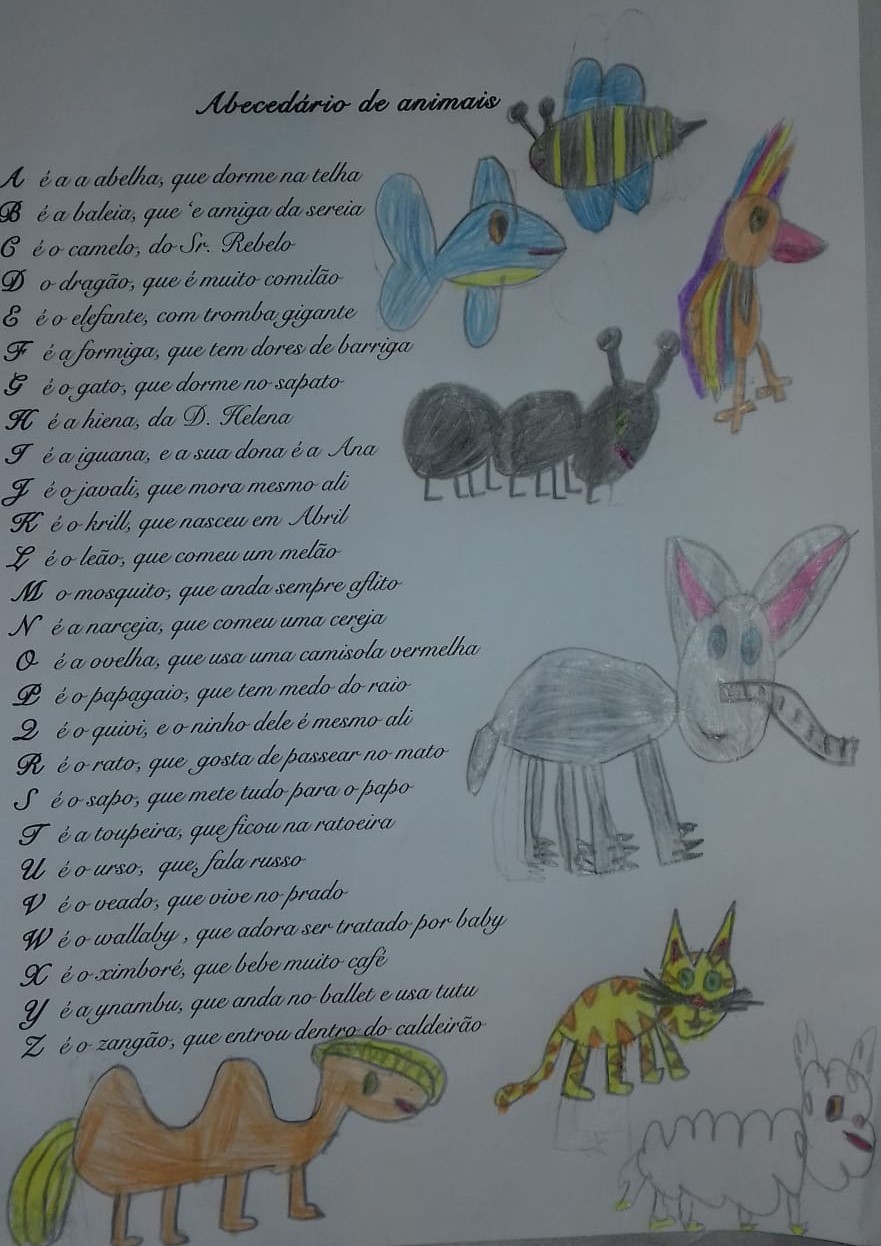 Abecedário de animais
A é a a abelha, que dorme na telha
B é a baleia, que 'e amiga da sereia
C é o camelo, do Sr. Rebelo
D o dragão, que é muito comilão
E é o elefante, com tromba gigante
F é a formiga, que tem dores de barriga
G é o gato, que dorme no sapato
H é a hiena, da D. Helena
I é a iguana, e a sua dona é a Ana
J é o javali, que mora mesmo ali
K é o krill, que nasceu em Abril
L é o leão, que comeu um melão
M o mosquito, que anda sempre aflito
N é a narceja, que comeu uma cereja
O é a ovelha, que usa uma camisola vermelha
P é o papagaio, que tem medo do raio
Q é o quivi, e o ninho dele é mesmo ali
R é o rato, que gosta de passear no mato
S é o sapo, que mete tudo para o papo
T é a toupeira, que ficou na ratoeira
U é o urso, que, fala russo
V é o veado, que vive no prado
W é o wallaby , que adora ser tratado por baby
X é o ximboré, que bebe muito café
Y é a ynambu, que anda no ballet e usa tutu
Z é o zangão, que entrou dentro do caldeirão